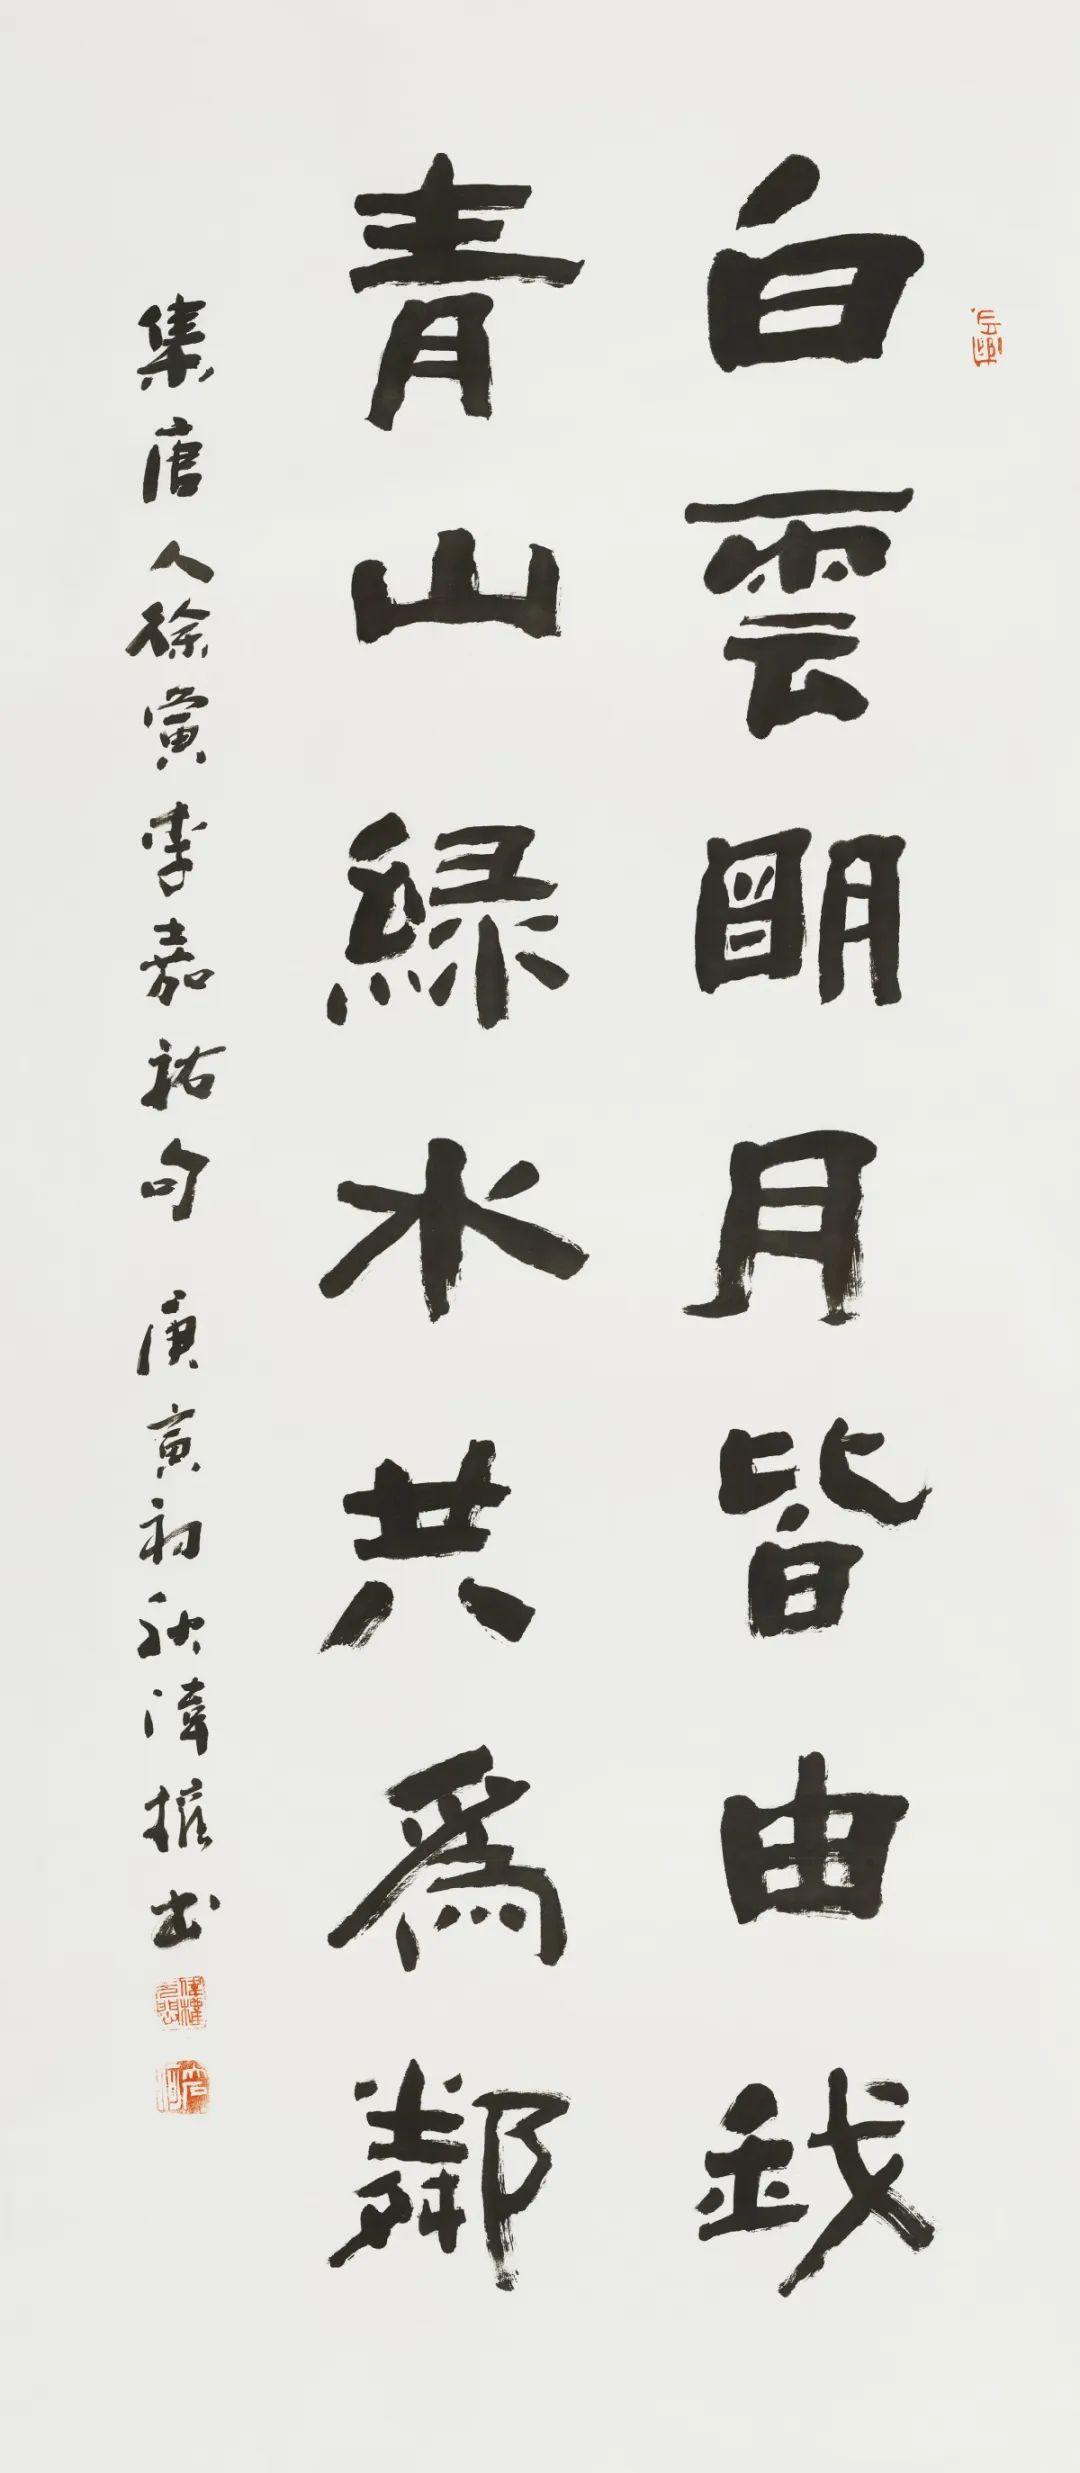 白雲明月皆由我
青山綠水共爲鄰
集唐人徐夤李嘉祐句 庚寅初秋偉權書